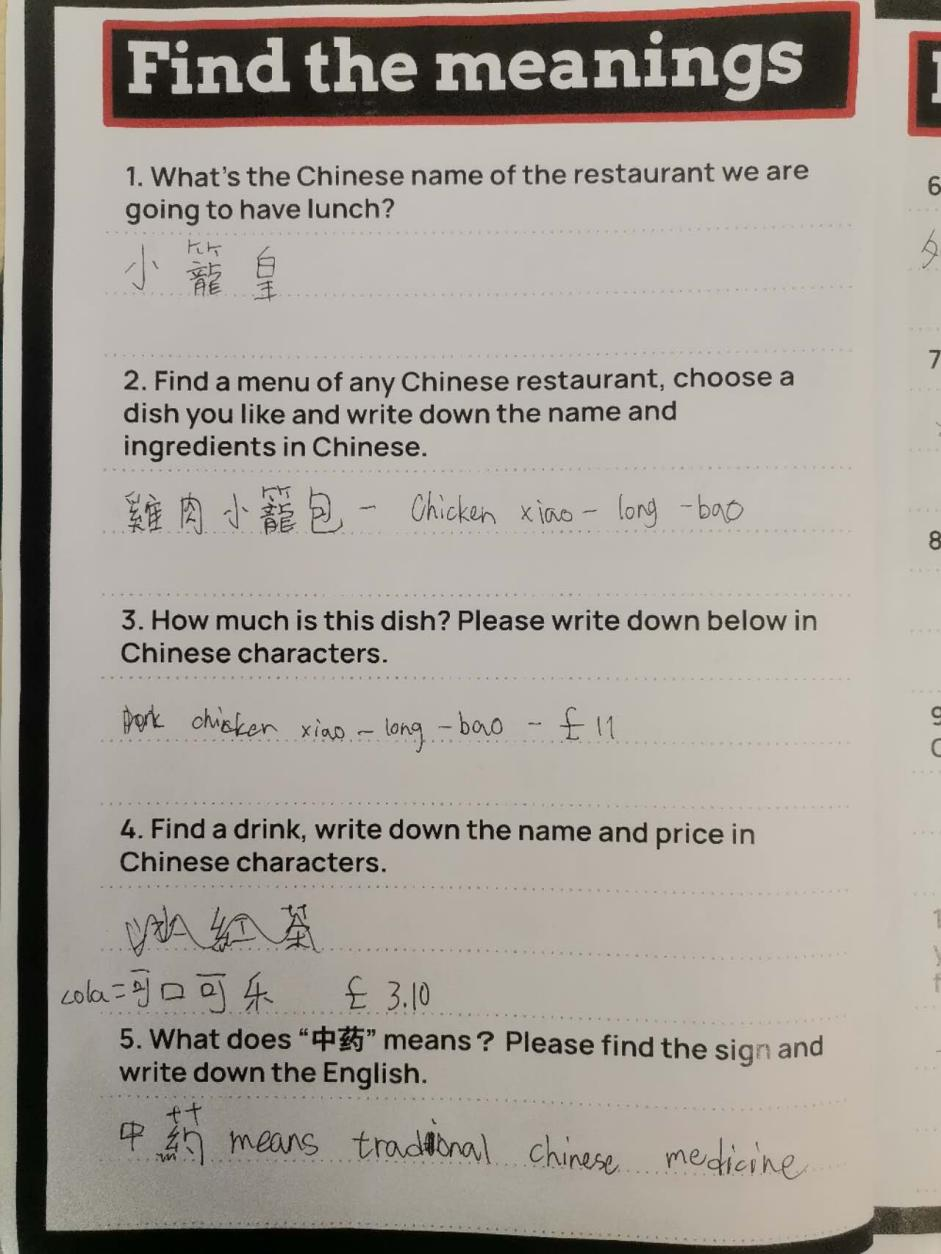 Find the meanings
1. What's the Chinese name of the restaurant we are
going to have lunch?
小籠皇
2. Find a menu of any Chinese restaurant, choose a
dish you like and write down the name and
ingredients in Chinese.
雞肉小籠包 - Chicken xiao-long-bao
3. How much is this dish? Please write down below in
Chinese characters.
chicken xiao-long-bao - £11
4. Find a drink, write down the name and price in
Chinese characters.
紅茶
cola=可口可乐 £3.10
5. What does “中药” means? Please find the sign and
write down the English.
中药 means traditional chinese medicine
6
7
8
9